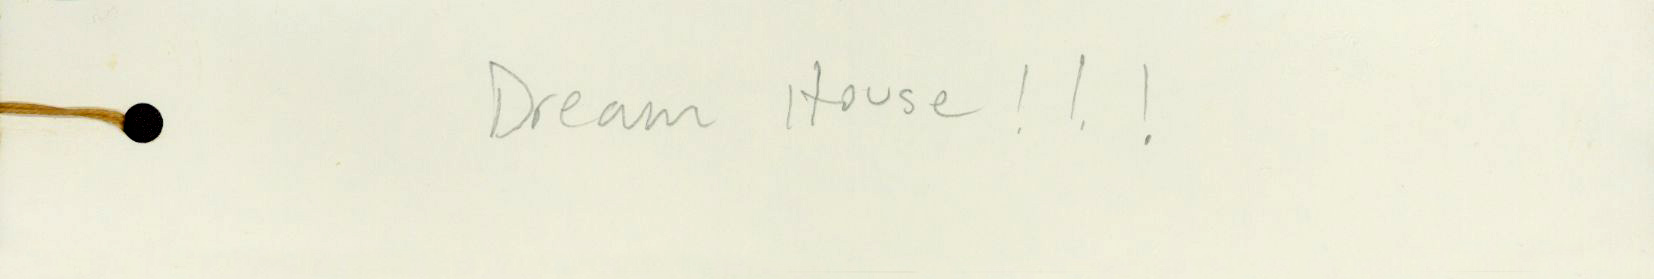 Dream House!!!